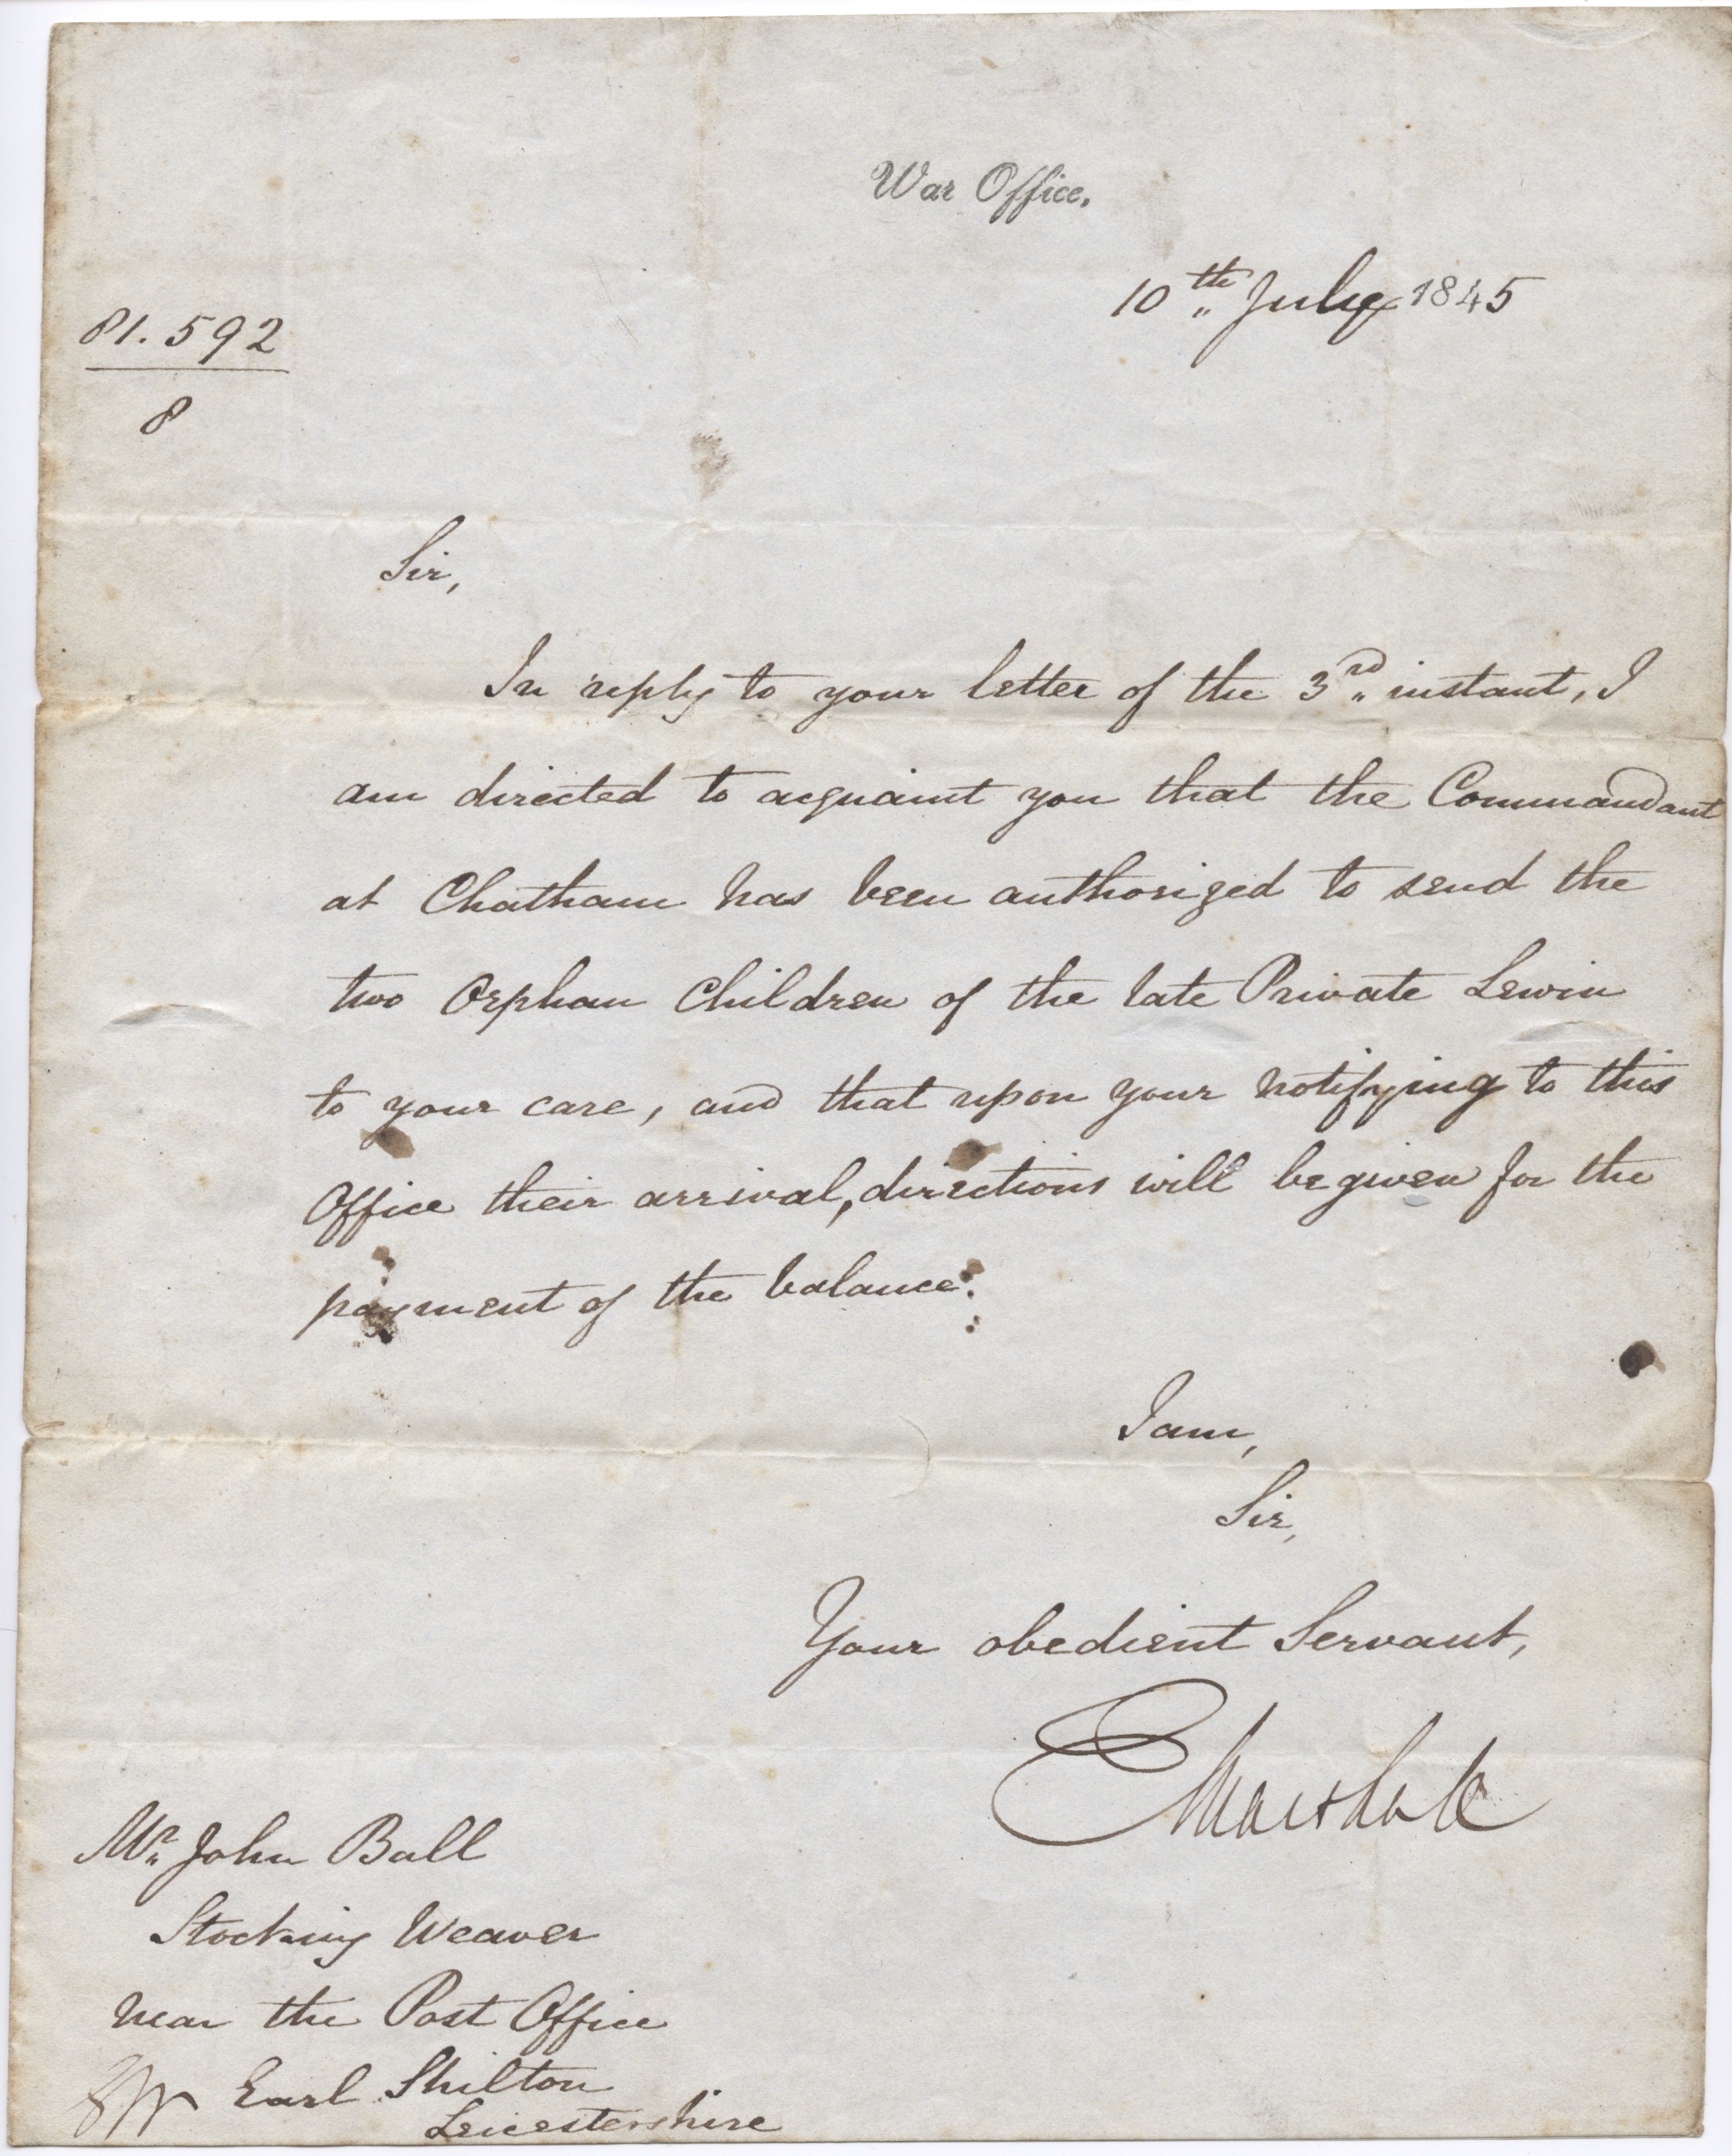 War Office.
10th July 1845
81.592
8
Sir,
In reply to your letter of the 3rd instant, I
am directed to acquaint you that the Commandant
at Chatham has been authorized to send the
two Orphan Children of the late Private Lewin
to your care, and that upon your notifying to this
Office their arrival, directions will be given for the
payment of the balance.
I am,
Sir,
Your obedient Servant,
Marshall
Mr. John Ball
Stocking Weaver
near the Post Office
Earl Shilton
Leicestershire